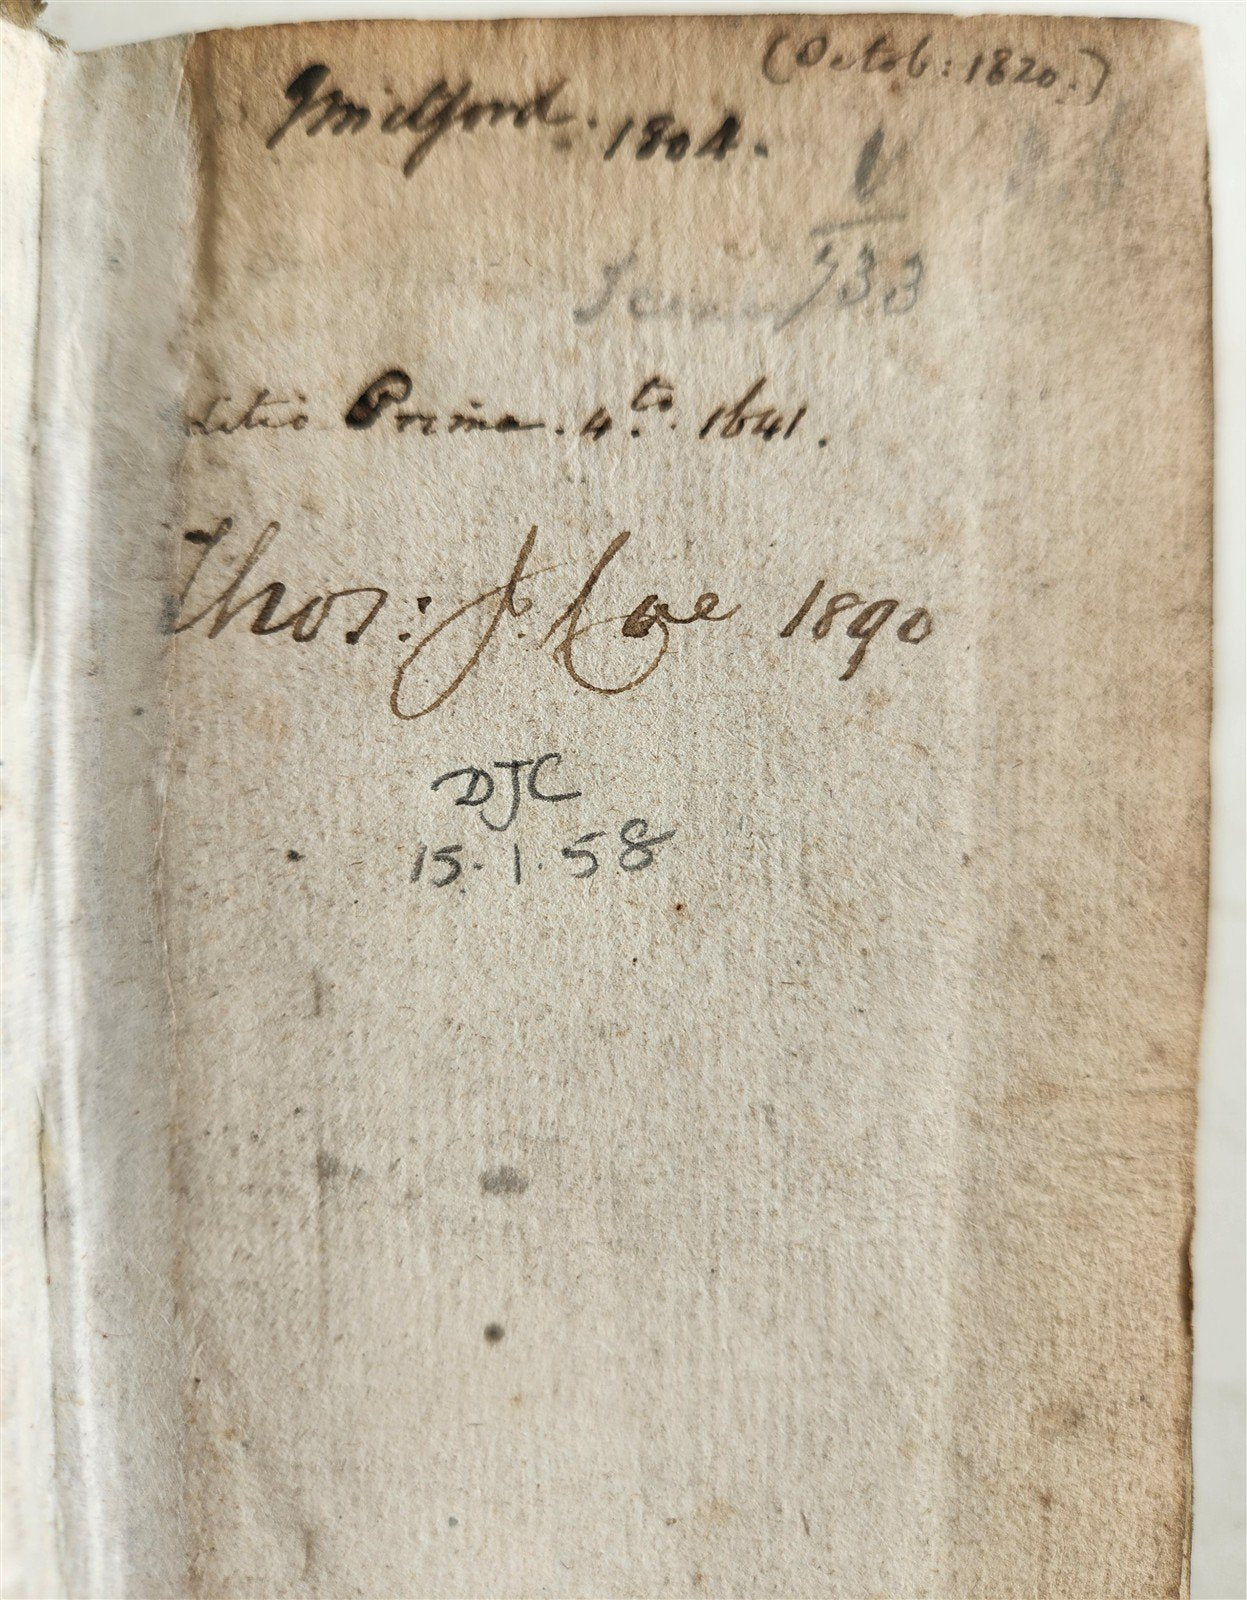 (Octob: 1820.)
J Mitford. 1804.
1
133
ditio Prima. 4to. 1641.
Thos: J. Coe 1890
DJC
15.1.58